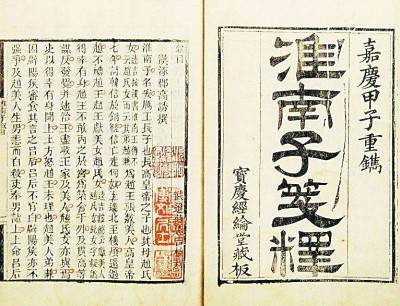 嘉慶甲子重鐫
淮南子箋釋
寶慶經綸堂藏板
敘目
漢涿郡高誘撰
淮南子名安厲王長子也長高皇帝之子也其母趙氏
女
為趙王張敖美人高皇帝
七年討韓信於銅鞮信亡走匈奴上遂北至樓煩還過
趙不禮趙王趙王獻美女趙氏女
得幸有身趙王不敢內之於宮為築舍於外及貫高等
謀反發覺并逮治王盡收王家及美人趙氏女亦與焉
吏以得幸有身聞上上方怒趙王未理也趙美人弟兼
因辟陽侯審食其言之呂后呂后不肯白辟陽侯亦不
強爭及趙美人生男恚而自殺吏奉男詣上上命呂后